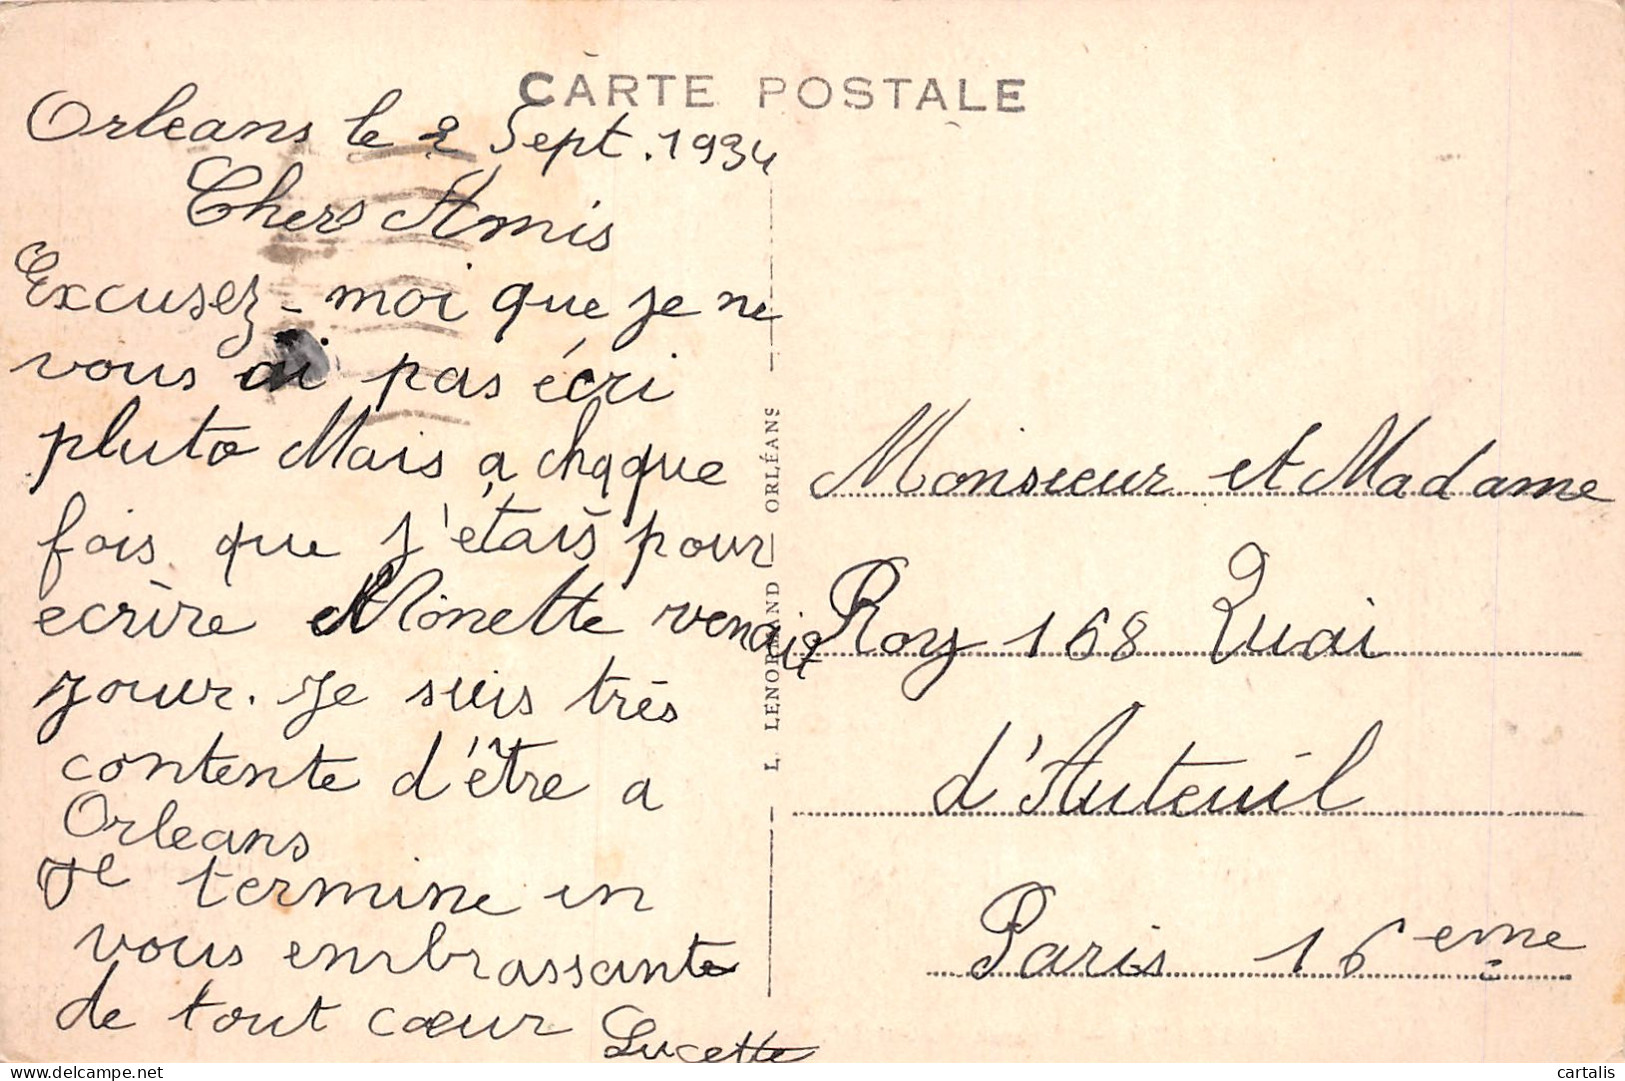 CARTE POSTALE
Orleans le 2 Sept. 1934
Chers Amis
Excusez-moi que je ne
vous ai pas écri
pluto Mais a chaque
fois que j'étais pour
ecrire Monette venait
jouer. Je suis très
contente d'être a
Orleans
Je termine en
vous embrassante
de tout cœur Lucette
L. LENORMAND ORLÉANS
Monsieur et Madame
Roy 168 Quai
d'Auteuil
Paris 16eme
cartalis